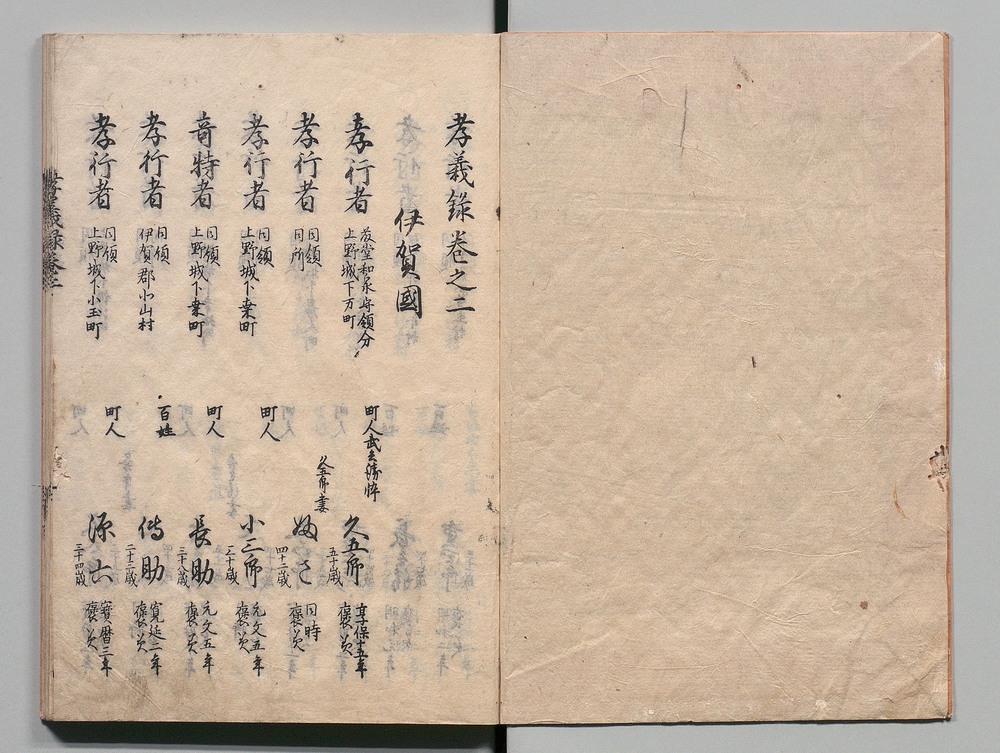 孝義錄卷之二
伊賀國
孝行者 藤堂和泉守領分 上野城下万町 町人武兵衛忰 久五郎 五十歳 享保十五年 褒美
孝行者 同領 同所 久五郎妻 四十二歳 同時 褒美
孝行者 同領 上野城下桒町 町人 小三郎 二十歳 元文五年 褒美
奇特者 同領 上野城下桒町 町人 長助 三十八歳 元文五年 褒美
孝行者 同領 伊賀郡小山村 百姓 傳助 二十二歳 寛延二年 褒美
孝行者 同領 上野城下小玉町 町人 源六 三十四歳 寶暦三年 褒美
孝義録卷二